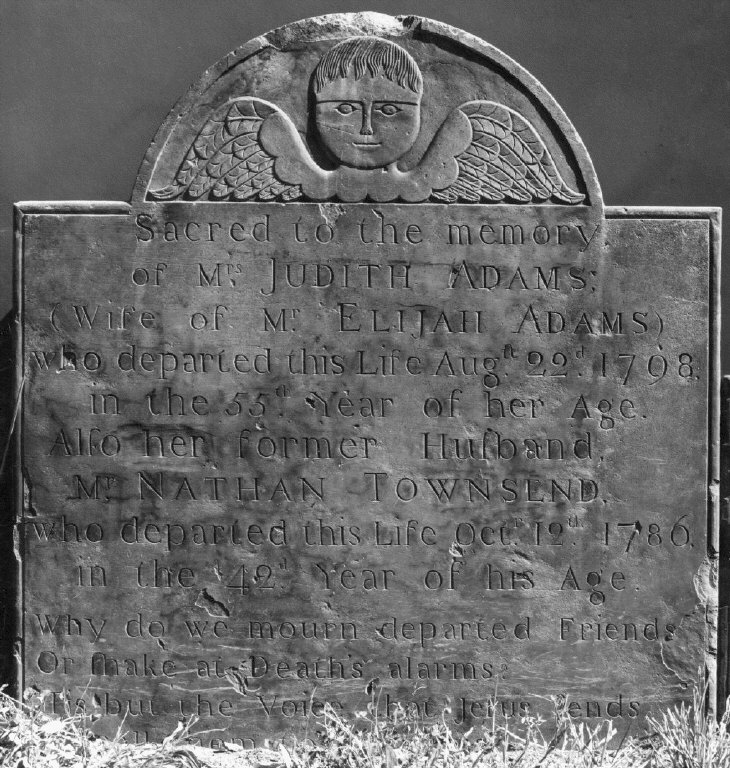 Sacred to the memory
of Mrs. JUDITH ADAMS;
(Wife of Mr ELIJAH ADAMS)
who departed this Life Augst. 22d. 1798.
in the 55th. Year of her Age.
Alſo her former Huſband,
Mr NATHAN TOWNSEND,
who departed this Life Octr. 12th. 1786.
in the 42d Year of his Age.
Why do we mourn departed Friends
Or ſhake at Death's alarms?
'Tis but the Voice that Jeſus ſends